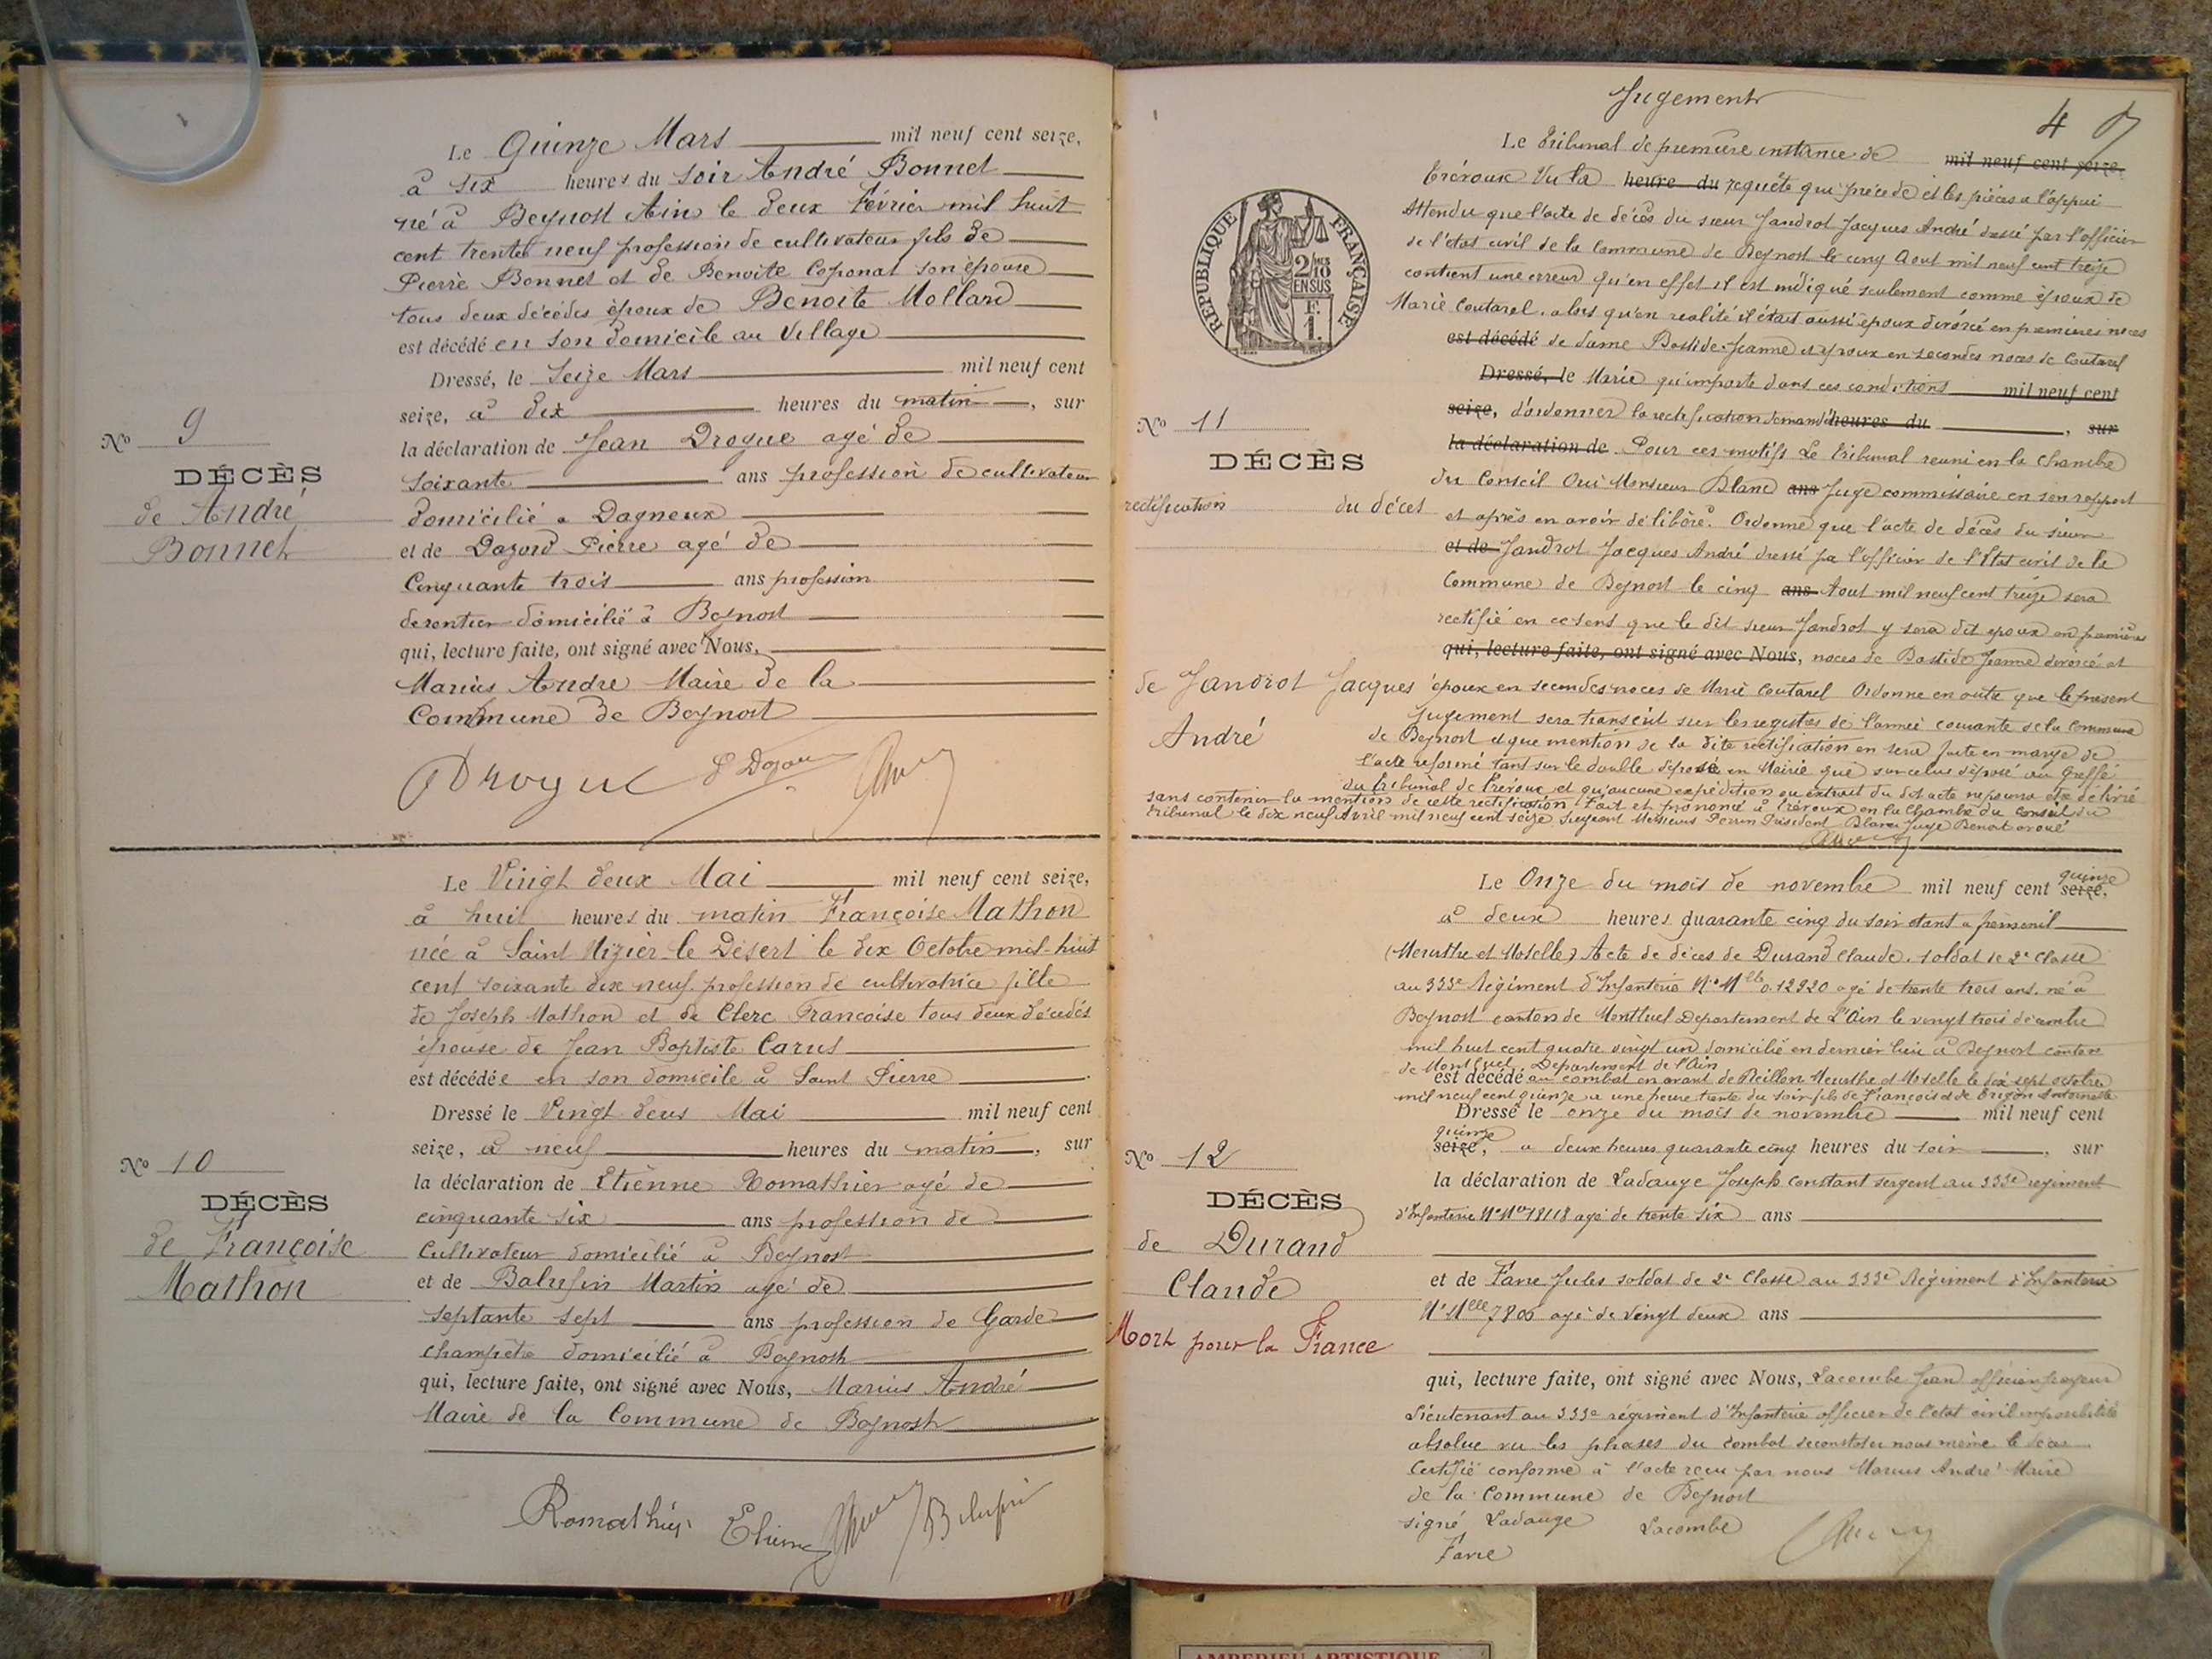 Le Quinze Mars mil neuf cent seize,
à six heures du soir André Bonnet
né à Beynost Ain le deux Février mil huit
cent trente neuf profession de cultivateur fils de
Pierre Bonnet et de Benoite Coponat son épouse
tous deux décédés époux de Benoite Mollard
est décédé en son domicile au Village
Dressé, le Seize Mars mil neuf cent
seize, à dix heures du matin, sur
la déclaration de Jean Drogue agé de
soixante ans profession de cultivateur
domicilié a Dagneux
et de Dazord Pierre agé de
Cinquante trois ans profession
de rentier domicilié à Beynost
qui, lecture faite, ont signé avec Nous,
Marius André Maire de la
Commune de Beynost
Drogue
No 9
DÉCÈS
de André
Bonnet
Le Vingt deux Mai mil neuf cent seize,
à huit heures du matin Françoise Mathon
née à Saint Nizier le Désert le dix Octobre mil huit
cent soixante dix neuf profession de cultivatrice fille
de Joseph Mathon et de Clerc Françoise tous deux décédés
épouse de Jean Baptiste Carus
est décédée en son domicile à Saint Pierre
Dressé le Vingt deux Mai mil neuf cent
seize, à neuf heures du matin, sur
la déclaration de Etienne Romathier agé de
cinquante six ans profession de
Cultivateur domicilié à Beynost
et de Martin agé de
septante sept ans profession de Garde
champêtre domicilié à Beynost
qui, lecture faite, ont signé avec Nous, Marius André
Maire de la Commune de Beynost
Romathier Etienne
No 10
DÉCÈS
de Françoise
Mathon
Jugement
4
Le Tribunal de première instance de mil neuf cent seize,
Trévoux Vu la heure du requête qui précède et les pièces a l'appui
Attendu que l'acte de décès du sieur Jandrot Jacques André dressé par l'officier
de l'état civil de la Commune de Beynost le cinq Aout mil neuf cent treize
contient une erreur qu'en effet il est indiqué seulement comme époux de
Marie Coutarel, alors qu'en réalité il était aussi époux divorcé en premières noces
est décédé de dame Bastide Jeanne et époux en secondes noces de Coutarel
Dressé, le Marie qu'importe dans ces conditions mil neuf cent
seize, d'ordonner la rectification demandé heures du , sur
la déclaration de Pour ces motifs Le Tribunal reuni en la Chambre
du Conseil Oui Monsieur Blanc ans Juge commissaire en son rapport
et après en avoir délibéré. Ordonne que l'acte de décès du sieur
et de Jandrot Jacques André dressé pa l'officier de l'Etat civil de la
Commune de Beynost le cinq ans Aout mil neuf cent treize sera
rectifié en ce sens que le dit sieur Jandrot y sera dit epoux en premières
qui, lecture faite, ont signé avec Nous, noces de Bastide Jeanne divorcé et
époux en secondes noces de Marie Coutarel Ordonne en outre que le présent
Jugement sera transcrit sur les registres de l'année courante de la Commune
de Beynost et que mention de la dite rectification en sera faite en marge de
l'acte reformé tant sur le double déposé en Mairie que sur celui déposé au Greffe
du tribunal de Trévoux et qu'aucune expédition ou extrait du dit acte ne pourra être délivré
sans contenir la mention de cette rectification Fait et prononcé à Trévoux en la Chambre du Conseil du
Tribunal le dix neuf Avril mil neuf cent seize Siégeant Messieurs Perrin Président Blanc Juge Benoit avoué
REPUBLIQUE FRANÇAISE
2/10
EN SUS
F.
1.
No 11
DÉCÈS
rectification du décet
de Jandrot Jacques
André
Le Onze du mois de novembre mil neuf cent seize, quinze
à deux heures quarante cinq du soir étant a
(Meurthe et Moselle) Acte de décès de Durand Claude, soldat de 2e Classe
au 333e Régiment d'Infanterie No Mlle 0.12920 agé de trente trois ans, né à
Beynost canton de Montluel Departement de L'Ain le vingt trois décembre
mil huit cent quatre vingt un domicilié en dernier lieu à Beynost canton
de Montluel Departement de l'Ain
est décédé au combat en avant de Reillon Meurthe et Moselle le dix sept octobre
mil neuf cent quinze a une heure trente du soir fils de François et de Antoinette
Dressé le onze du mois de novembre mil neuf cent
seize, quinze a deux heures quarante cinq heures du soir, sur
la déclaration de Ladauge Joseph Constant sergent au 333e regiment
d'Infanterie No Mle 18118 agé de trente six ans
et de Favre Jules soldat de 2e Classe au 333e Régiment d'Infanterie
No Mlle 7806 agé de vingt deux ans
qui, lecture faite, ont signé avec Nous, Lacombe Jean officier payeur
Lieutenant au 333e régiment d'Infanterie officier de l'état civil impossibilité
absolue vu les phases du combat de constater nous même le décès
Certifié conforme à l'acte reçu par nous Marius André Maire
de la Commune de Beynost
signé Ladauge Lacombe
Favre
No 12
DÉCÈS
de Durand
Claude
Mort pour la France
AMBERIEU ARTISTIQUE